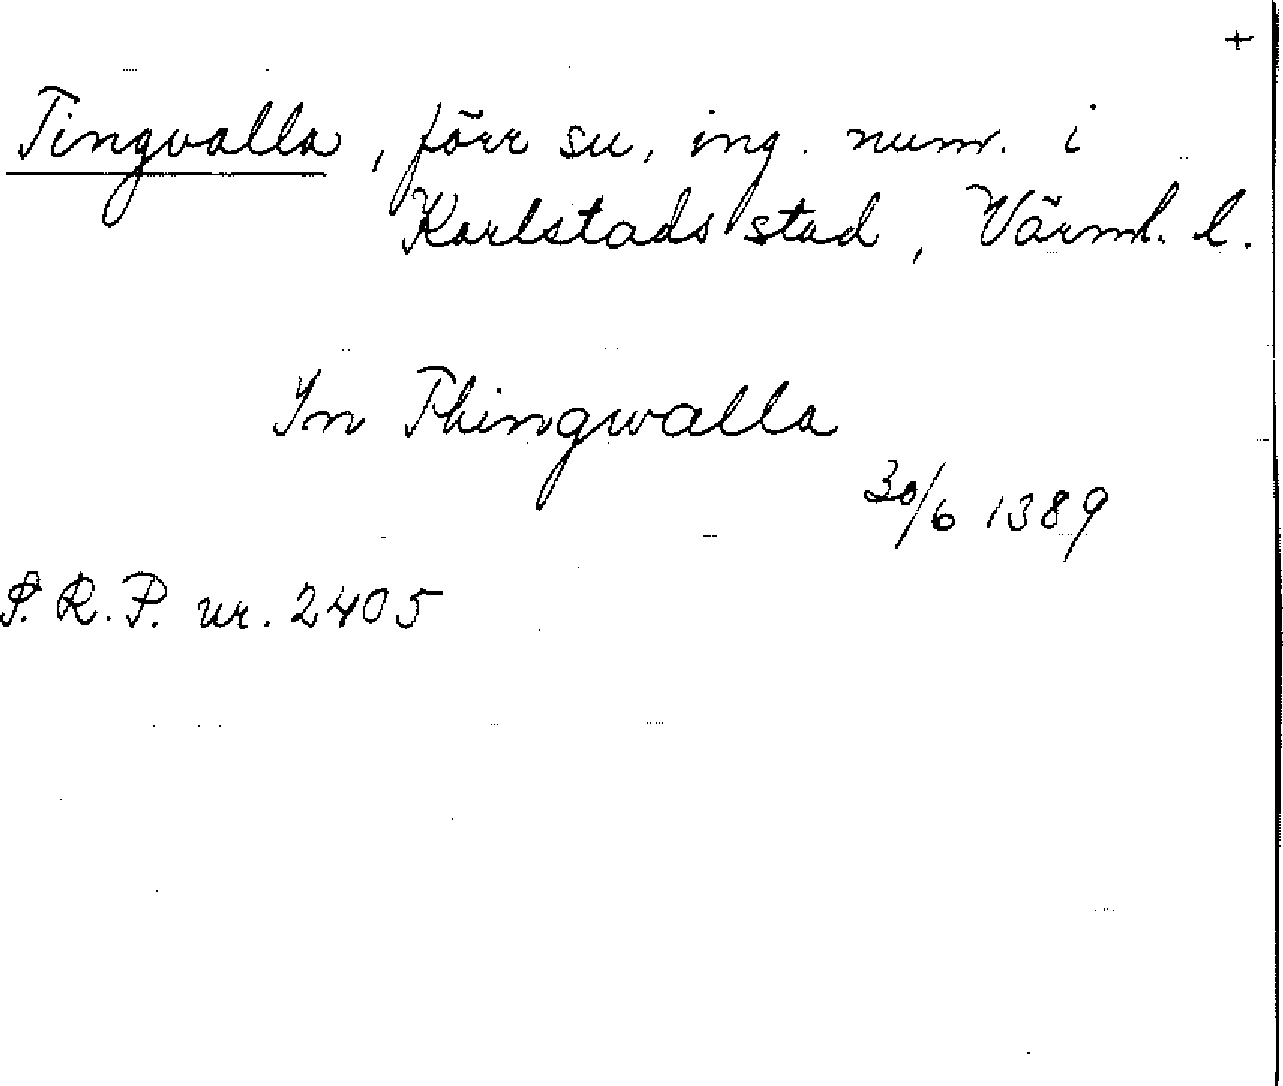 +
Tingvalla, förr sn, ing. num. i
Karlstads stad, Värml. l.
In Thingwalla
30/6 1389
P.R.P. nr. 2405